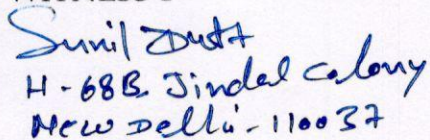 Sunil Dutt
H-68B Jindal Colony
New Delhi-110037